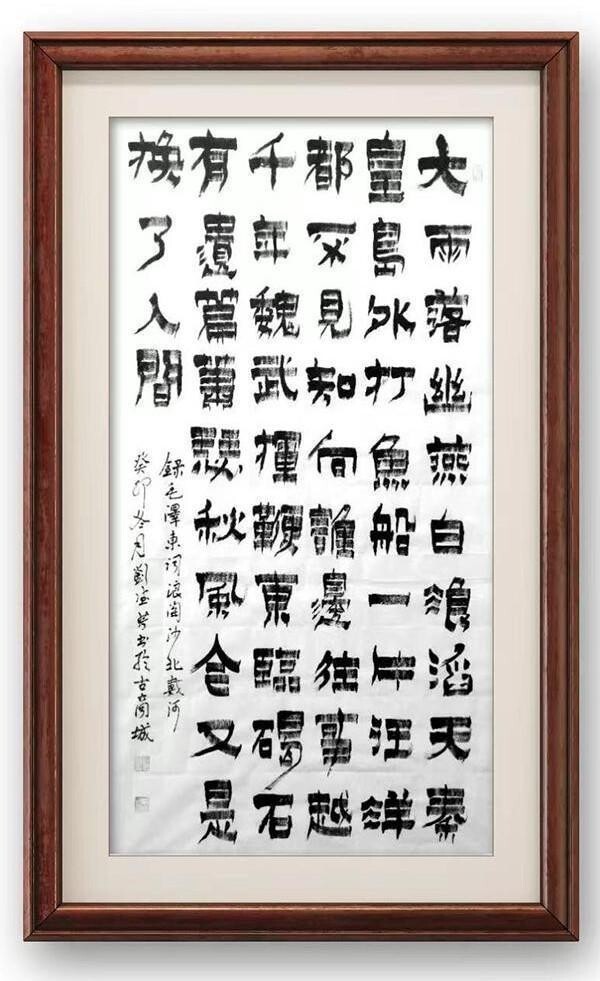 大雨落幽燕白浪滔天秦
皇島外打魚船一片汪洋
都不見知向誰邊往事越
千年魏武揮鞭東臨碣石
有遺篇蕭瑟秋風今又是
换了人間
録毛澤東词浪淘沙北戴河
癸卯冬月劉書於古商城